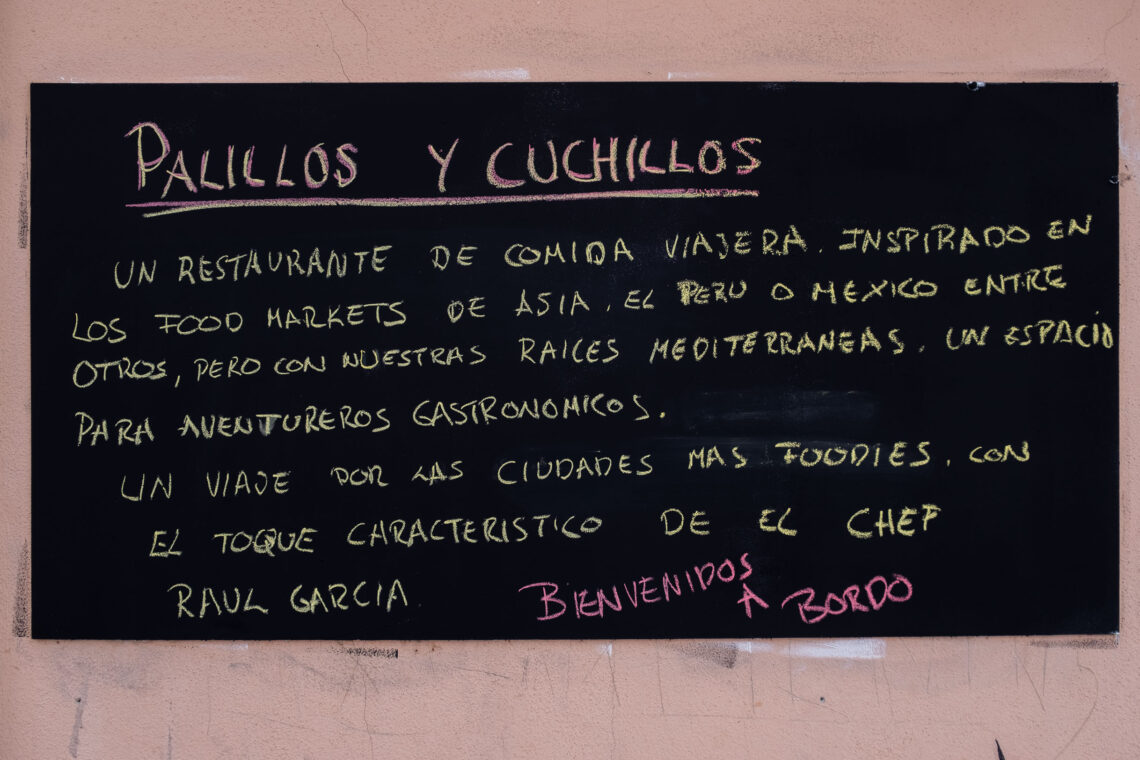 PALILLOS Y CUCHILLOS
UN RESTAURANTE DE COMIDA VIAJERA. INSPIRADO EN
LOS FOOD MARKETS DE ASIA, EL PERU O MEXICO ENTRE
OTROS, PERO CON NUESTRAS RAICES MEDITERRANEAS. UN ESPACIO
PARA AVENTUREROS GASTRONOMICOS.
UN VIAJE POR LAS CIUDADES MAS FOODIES, CON
EL TOQUE CARACTERISTICO DE EL CHEF
RAUL GARCIA. BIENVENIDOS A BORDO